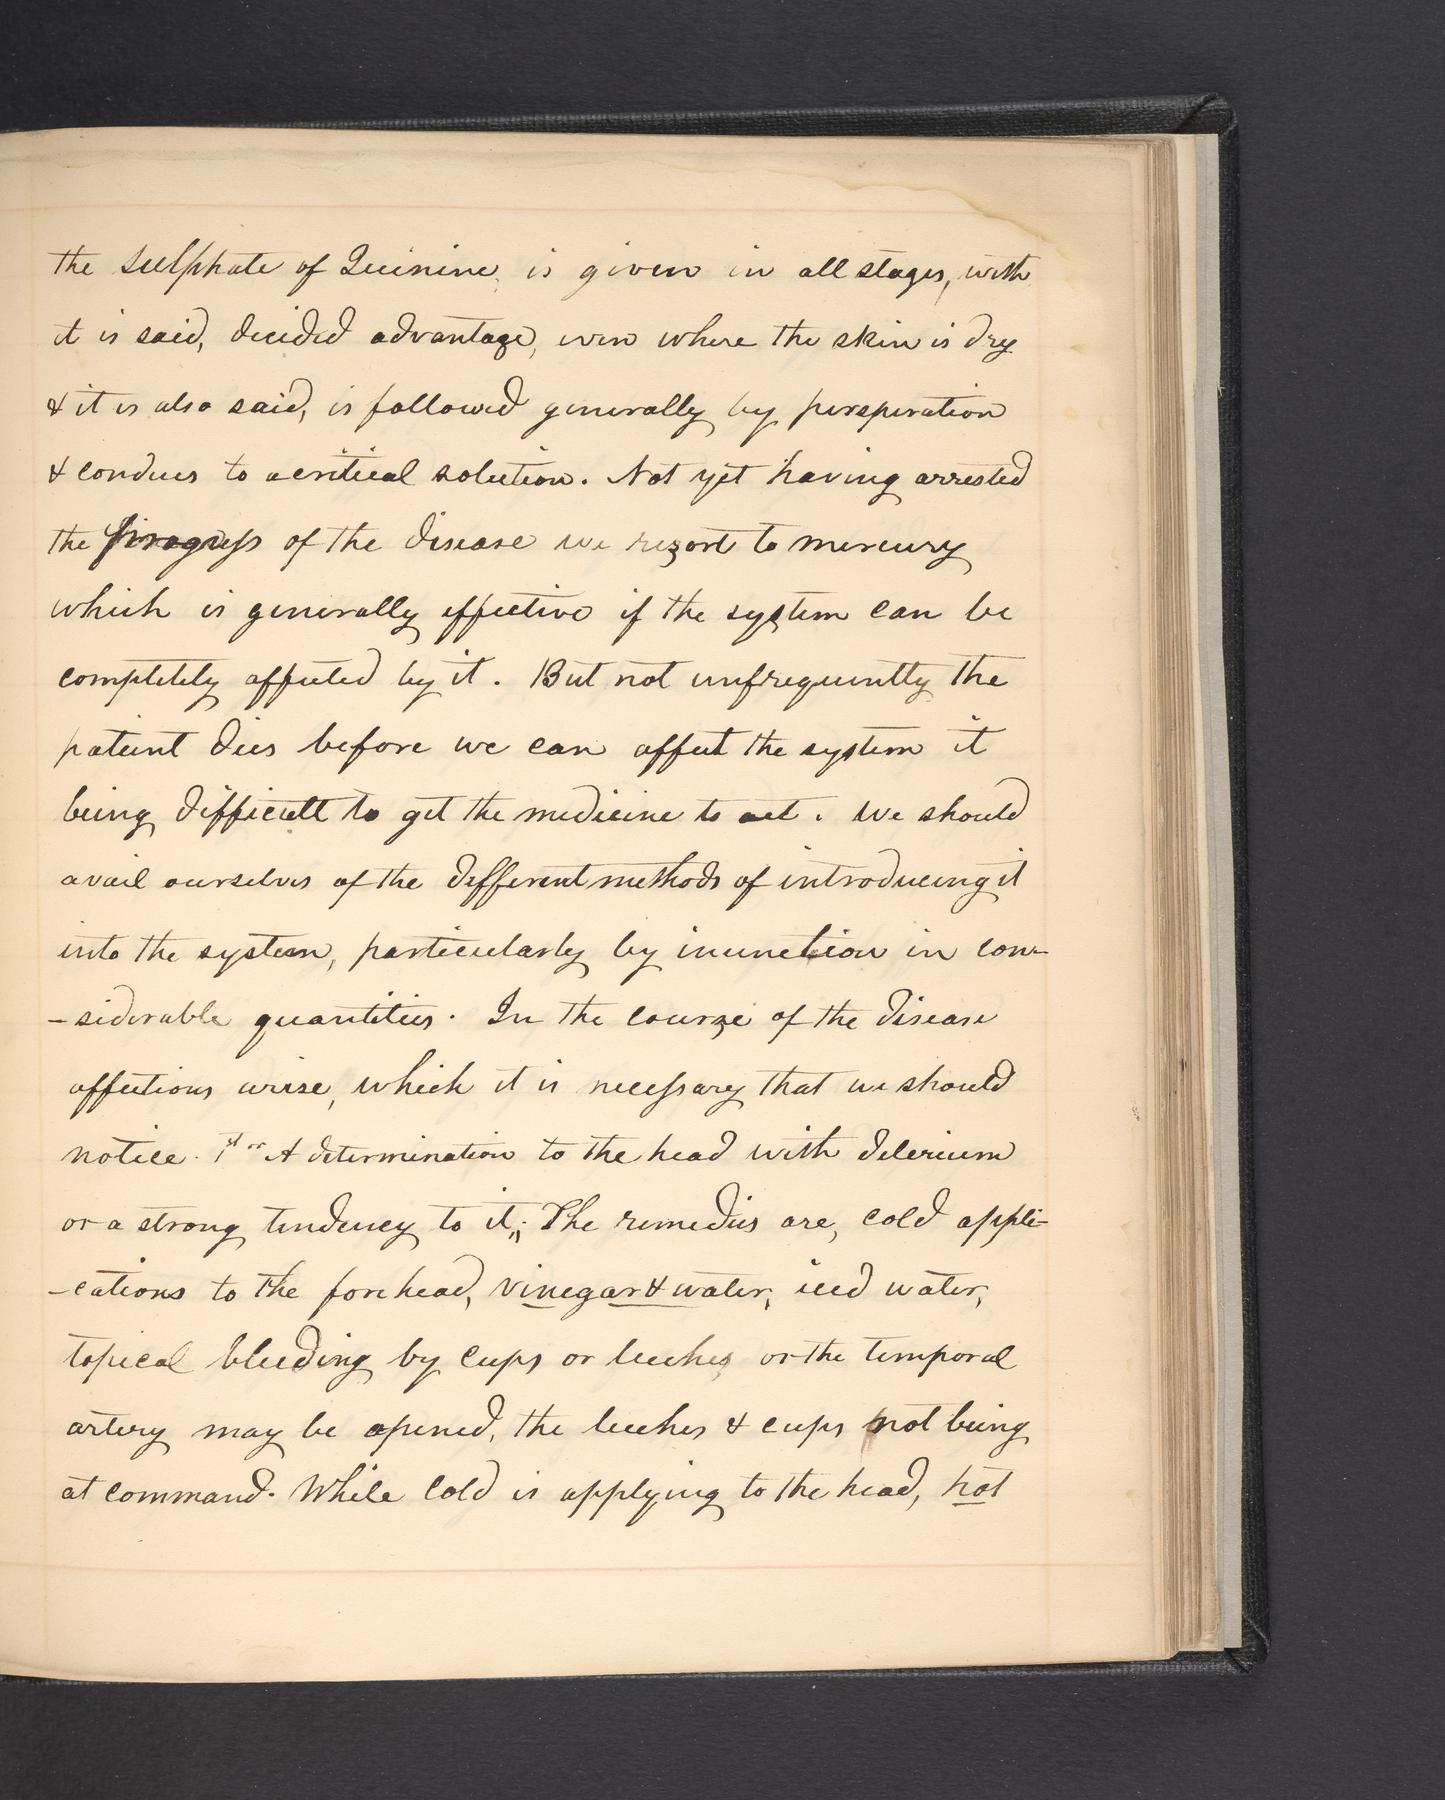 the sulphate of Quinine, is given in all stages, with
it is said, decided advantage, even where the skin is dry
& it is also said, is followed generally by perspiration
& conduces to a critical solution. Not yet having arrested
the progress of the disease we resort to mercury
which is generally effective if the system can be
completely affected by it. But not unfrequently the
pateint dies before we can affect the system it
being difficult to get the medicine to act. We should
avail ourselves of the different methods of introducing it
into the system, particularly by inunction in con-
-siderable quantities. In the course of the disease
affections arise, which it is necessary that we should
notice. 1st A determination to the head with delerium
or a strong tendency to it,; The remedies are, cold appli-
-cations to the forehead, vinegar & water, iced water,
topical bleeding by cups or leeches or the temporal
artery may be opened, the leeches & cups not being
at command. While cold is applying to the head, hot